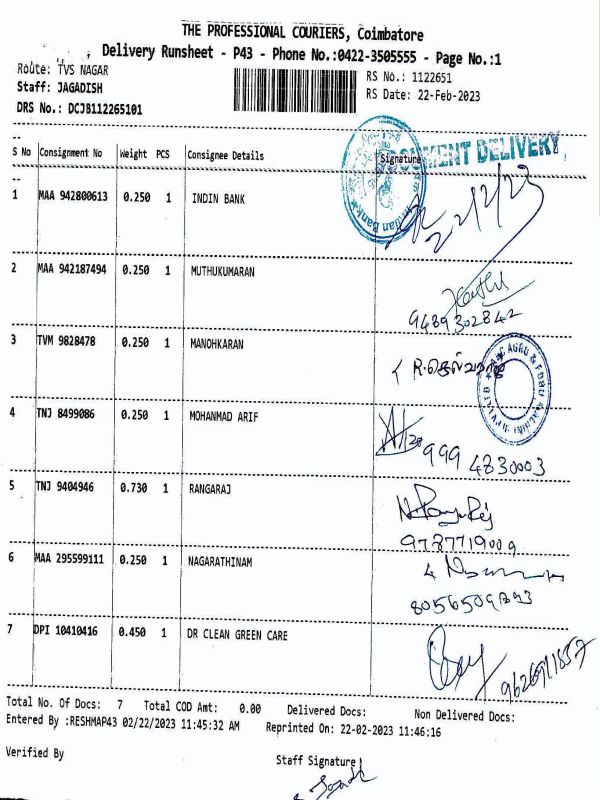 THE PROFESSIONAL COURIERS, Coimbatore
Delivery Runsheet - P43 - Phone No.:0422-3505555 - Page No.:1
Route: TVS NAGAR
RS No.: 1122651
Staff: JAGADISH
RS Date: 22-Feb-2023
DRS No.: DCJB112265101
S No Consignment No Weight PCS Consignee Details Signature
DOCUMENT DELIVERY
Indian Bank
1 MAA 942800613 0.250 1 INDIN BANK
22/2/23
2 MAA 942187494 0.250 1 MUTHUKUMARAN
9489302842
3 TVM 9828478 0.250 1 MANOHKARAN
R.செல்வராஜ்
4 TNJ 8499086 0.250 1 MOHANMAD ARIF
999 4830003
5 TNJ 9404946 0.730 1 RANGARAJ
9787719009
6 MAA 295599111 0.250 1 NAGARATHINAM
8056509893
7 DPI 10410416 0.450 1 DR CLEAN GREEN CARE
9626911857
Total No. Of Docs: 7 Total COD Amt: 0.00 Delivered Docs: Non Delivered Docs:
Entered By :RESHMAP43 02/22/2023 11:45:32 AM Reprinted On: 22-02-2023 11:46:16
Verified By
Staff Signature